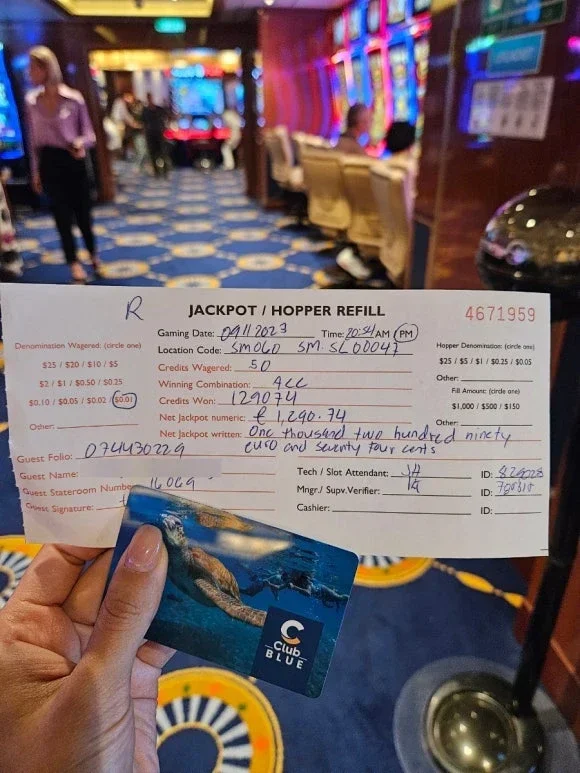 R
JACKPOT / HOPPER REFILL
4671959
Gaming Date: 09112023 Time: 20:54 AM PM
Location Code: SM060 SM.SL00047
Denomination Wagered: (circle one)
$25 / $20 / $10 / $5
$2 / $1 / $0.50 / $0.25
$0.10 / $0.05 / $0.02 / $0.01
Other:
Credits Wagered: 50
Winning Combination: ACC
Credits Won: 129074
Net Jackpot numeric: € 1,290.74
Net Jackpot written: One thousand two hundred ninety
euro and seventy four cents
Hopper Denomination: (circle one)
$25 / $5 / $1 / $0.25 / $0.05
Other:
Fill Amount: (circle one)
$1,000 / $500 / $150
Other:
Guest Folio: 074430229
Guest Name:
Guest Stateroom Number: 16069
Guest Signature:
Tech / Slot Attendant: JA ID:
Mngr./ Supv.Verifier: ID:
Cashier: ID:
C
Club
BLUE